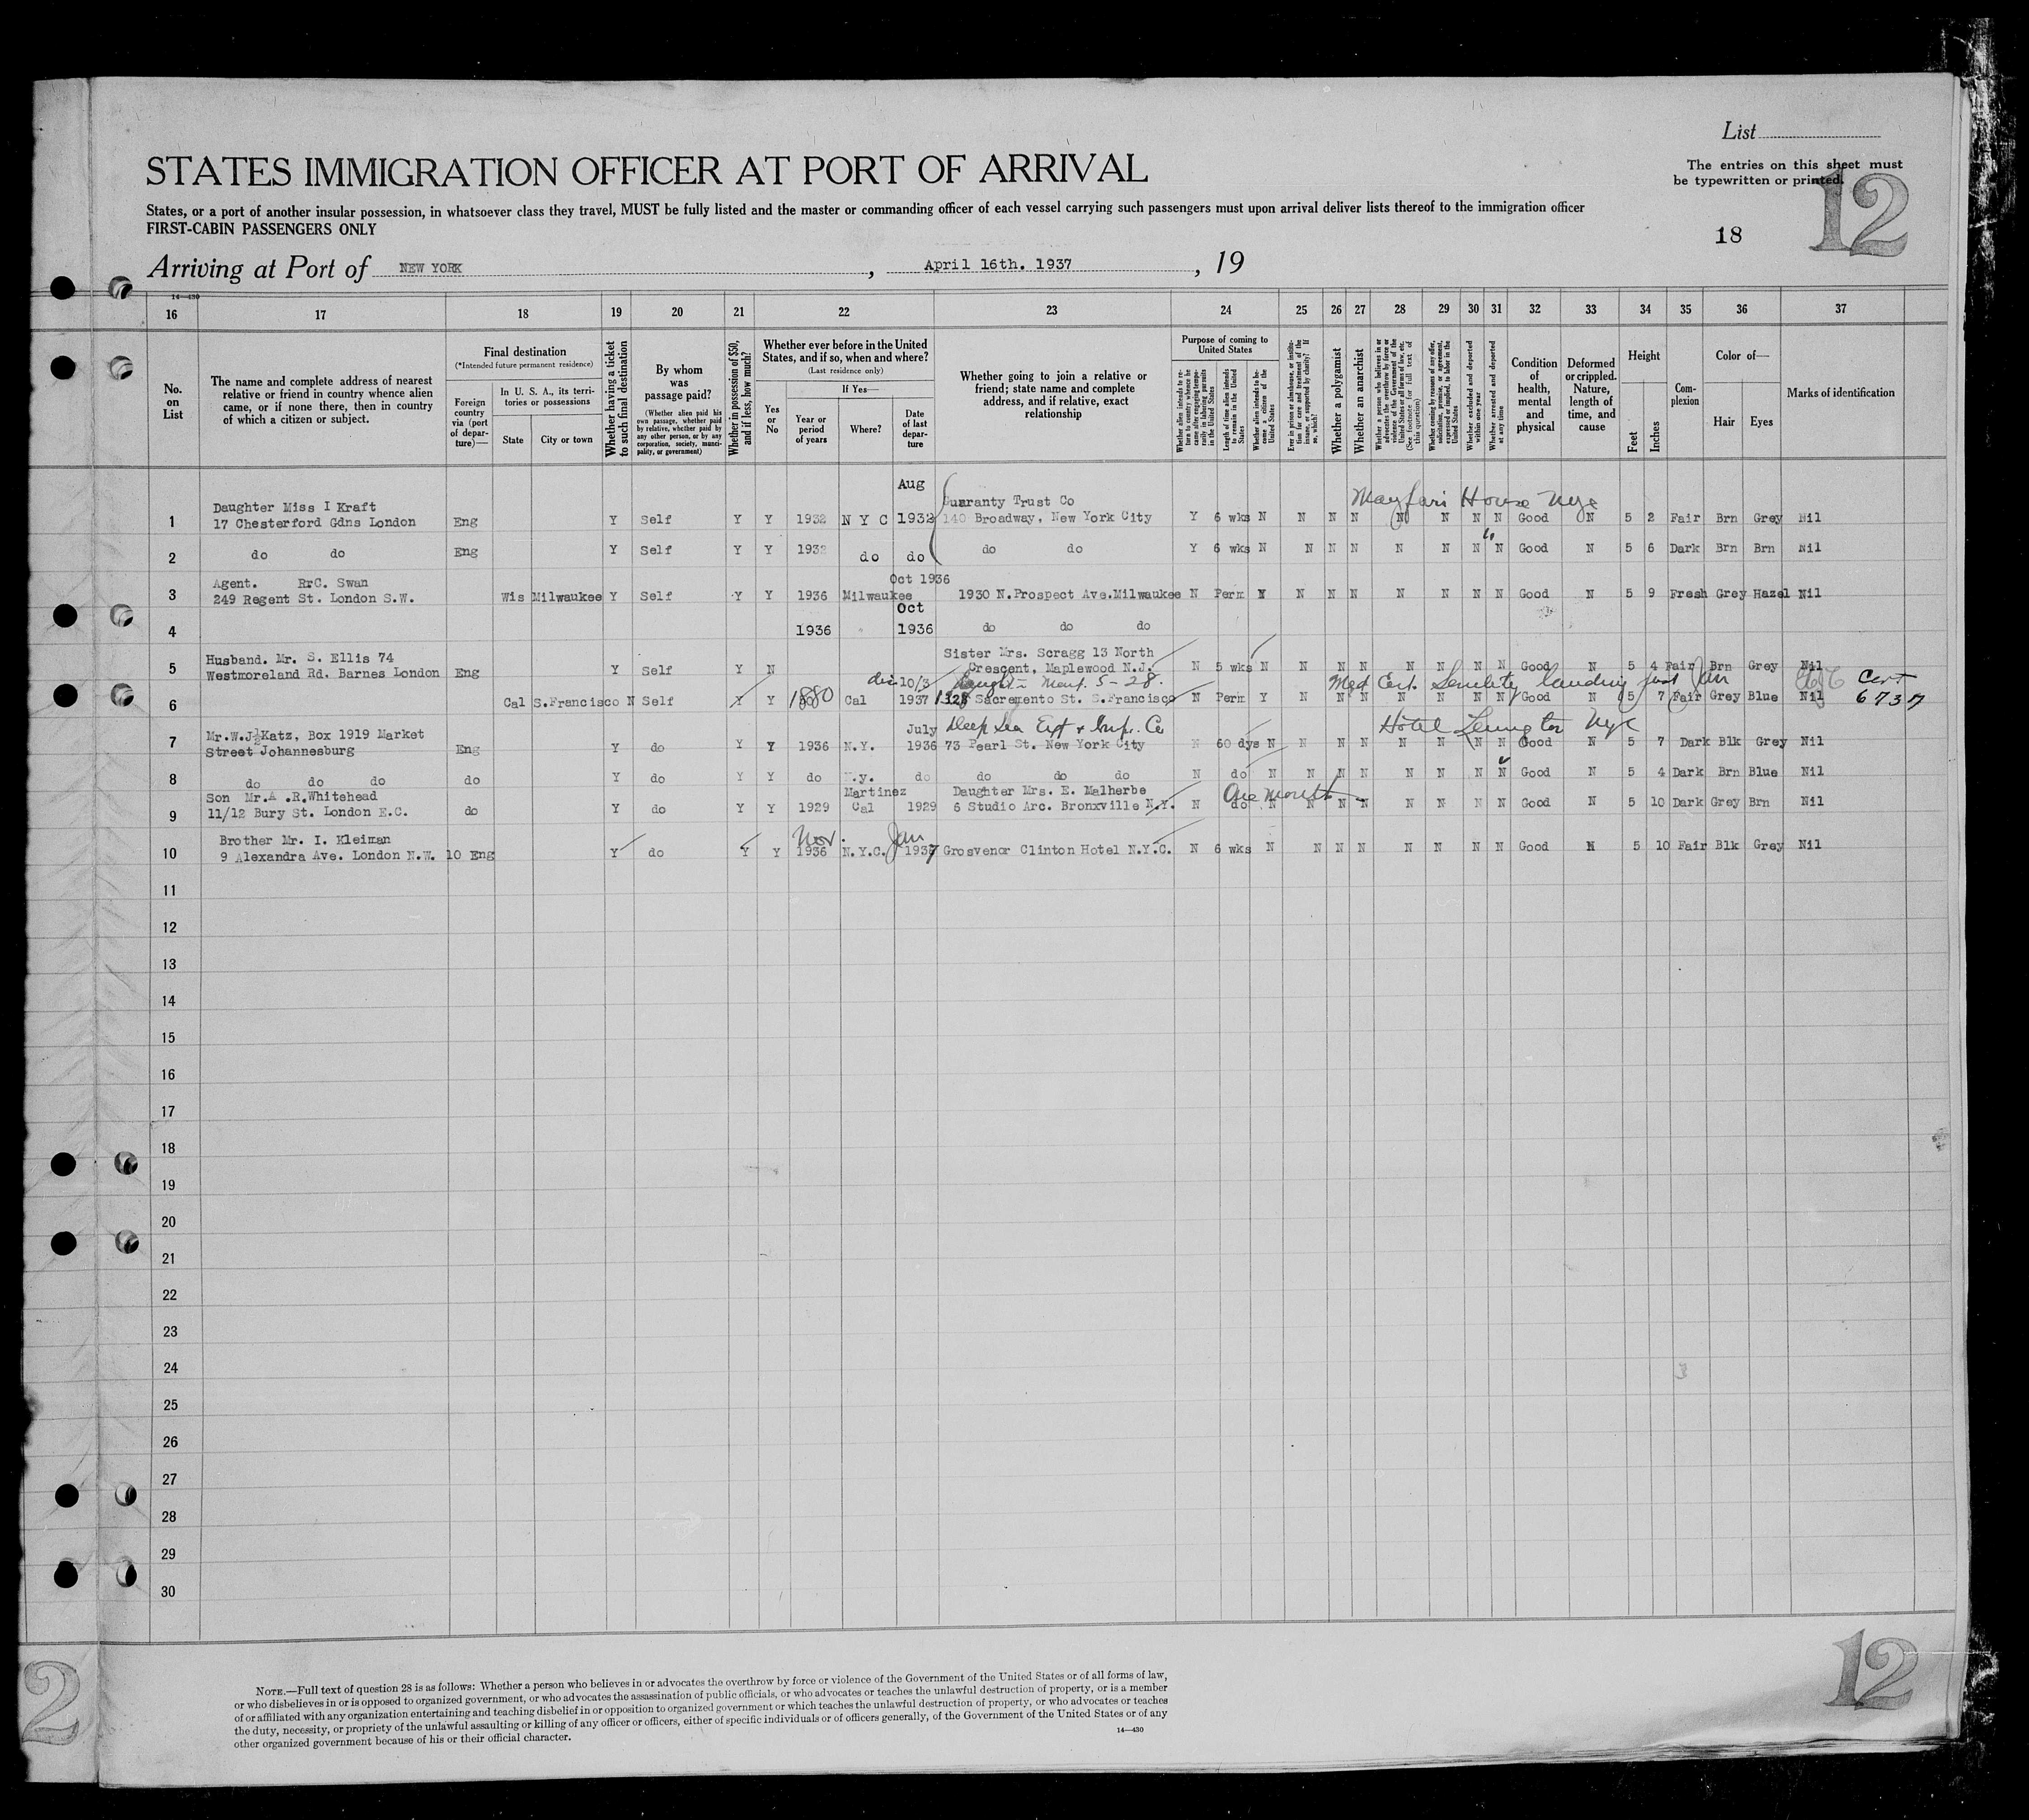 List
STATES IMMIGRATION OFFICER AT PORT OF ARRIVAL
The entries on this sheet must
be typewritten or printed.
12
States, or a port of another insular possession, in whatsoever class they travel, MUST be fully listed and the master or commanding officer of each vessel carrying such passengers must upon arrival deliver lists thereof to the immigration officer
FIRST-CABIN PASSENGERS ONLY
18
Arriving at Port of NEW YORK, April 16th. 1937, 19
14—430
16 17 18 19 20 21 22 23 24 25 26 27 28 29 30 31 32 33 34 35 36 37
No. on List
The name and complete address of nearest relative or friend in country whence alien came, or if none there, then in country of which a citizen or subject.
Final destination
(*Intended future permanent residence)
Foreign country via (port of departure)—
In U. S. A., its territories or possessions
State City or town
Whether having a ticket to such final destination
By whom was passage paid?
(Whether alien paid his own passage, whether paid by relative, whether paid by any other person, or by any corporation, society, municipality, or government)
Whether in possession of $50, and if less, how much?
Whether ever before in the United States, and if so, when and where?
(Last residence only)
Yes or No
If Yes—
Year or period of years
Where?
Date of last departure
Whether going to join a relative or friend; state name and complete address, and if relative, exact relationship
Purpose of coming to United States
Whether alien intends to return to country whence he came after engaging temporarily in laboring pursuits in the United States
Length of time alien intends to remain in the United States
Whether alien intends to become a citizen of the United States
Ever in prison or almshouse, or institution for care and treatment of the insane, or supported by charity? If so, which?
Whether a polygamist
Whether an anarchist
Whether a person who believes in or advocates the overthrow by force or violence of the Government of the United States or all forms of law, etc. (See footnote for full text of this question)
Whether coming by reason of any offer, solicitation, promise, or agreement, expressed or implied, to labor in the United States
Whether excluded and deported within one year
Whether arrested and deported at any time
Condition of health, mental and physical
Deformed or crippled. Nature, length of time, and cause
Height
Feet Inches
Complexion
Color of—
Hair Eyes
Marks of identification
Aug
Daughter Miss I Kraft Guaranty Trust Co Mayfair House Nyc
1 17 Chesterford Gdns London Eng Y Self Y Y 1932 N Y C 1932 140 Broadway, New York City Y 6 wks N N N N N N N N Good N 5 2 Fair Brn Grey Nil
2 do do Eng Y Self Y Y 1932 do do do do Y 6 wks N N N N N N N N Good N 5 6 Dark Brn Brn Nil
Agent. RrC. Swan Oct 1936
3 249 Regent St. London S.W. Wis Milwaukee Y Self Y Y 1936 Milwaukee 1930 N.Prospect Ave.Milwaukee N Perm Y N N N N N N N Good N 5 9 Fresh Grey Hazel Nil
Oct
4 1936 1936 do do do
Husband. Mr. S. Ellis 74 Sister Mrs. Scragg 13 North
5 Westmoreland Rd. Barnes London Eng Y Self Y N Crescent, Maplewood N.J. N 5 wks N N N N N N N N Good N 5 4 Fair Brn Grey Nil
10/3 5-28. Med Cert. Senility landing Cert
6 Cal S.Francisco N Self Y Y 1880 Cal 1937 Sacremento St. S.Francisco N Perm Y N N N N N N N Good N 5 7 Fair Grey Blue Nil 6737
July Deep Sea Exp + Imp. Co Hotel Lexington Nyc
Mr.W.J.Katz, Box 1919 Market
7 Street Johannesburg Eng Y do Y Y 1936 N.Y. 1936 73 Pearl St. New York City N 60 dys N N N N N N N N Good N 5 7 Dark Blk Grey Nil
8 do do do do Y do Y Y do N.y. do do do do N do N N N N N N N N Good N 5 4 Dark Brn Blue Nil
Son Mr.A .R.Whitehead Martinez Daughter Mrs. E. Malherbe One month
9 11/12 Bury St. London E.C. do Y do Y Y 1929 Cal 1929 6 Studio Arc. Bronxville N.Y. N do N N N N N N N N Good N 5 10 Dark Grey Brn Nil
Brother Mr. I. Kleiman Nov. Jan
10 9 Alexandra Ave. London N.W. 10 Eng Y do Y Y 1936 N.Y.C. 1937 Grosvenor Clinton Hotel N.Y.C. N 6 wks N N N N N N N N Good N 5 10 Fair Blk Grey Nil
11
12
13
14
15
16
17
18
19
20
21
22
23
24
25
26
27
28
29
30
12
2
NOTE.—Full text of question 28 is as follows: Whether a person who believes in or advocates the overthrow by force or violence of the Government of the United States or of all forms of law,
or who disbelieves in or is opposed to organized government, or who advocates the assassination of public officials, or who advocates or teaches the unlawful destruction of property, or is a member
of or affiliated with any organization entertaining and teaching disbelief in or opposition to organized government or which teaches the unlawful destruction of property, or who advocates or teaches
the duty, necessity, or propriety of the unlawful assaulting or killing of any officer or officers, either of specific individuals or of officers generally, of the Government of the United States or of any
other organized government because of his or their official character.
14—430